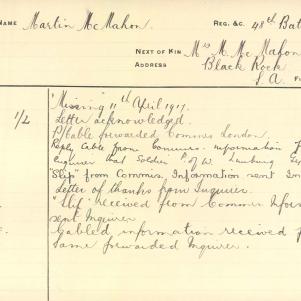 NAME Martin McMahon. REG. &C. 48th Bat
NEXT OF KIN Mrs M. McMahon
ADDRESS Black Rock
S.A.
1/2 "Missing" 11th April 1917.
Letter acknowledged.
P/Cable forwarded Commis London.
Reply Cable from Commis. information
Enquirer that Soldier P of W. Limburg
Slip" from Commis. Information sent
Letter of thanks from Inquirer.
"Slip" received from Commis Infor
sent Inquirer
Cabled information received
Same forwarded Inquirer.